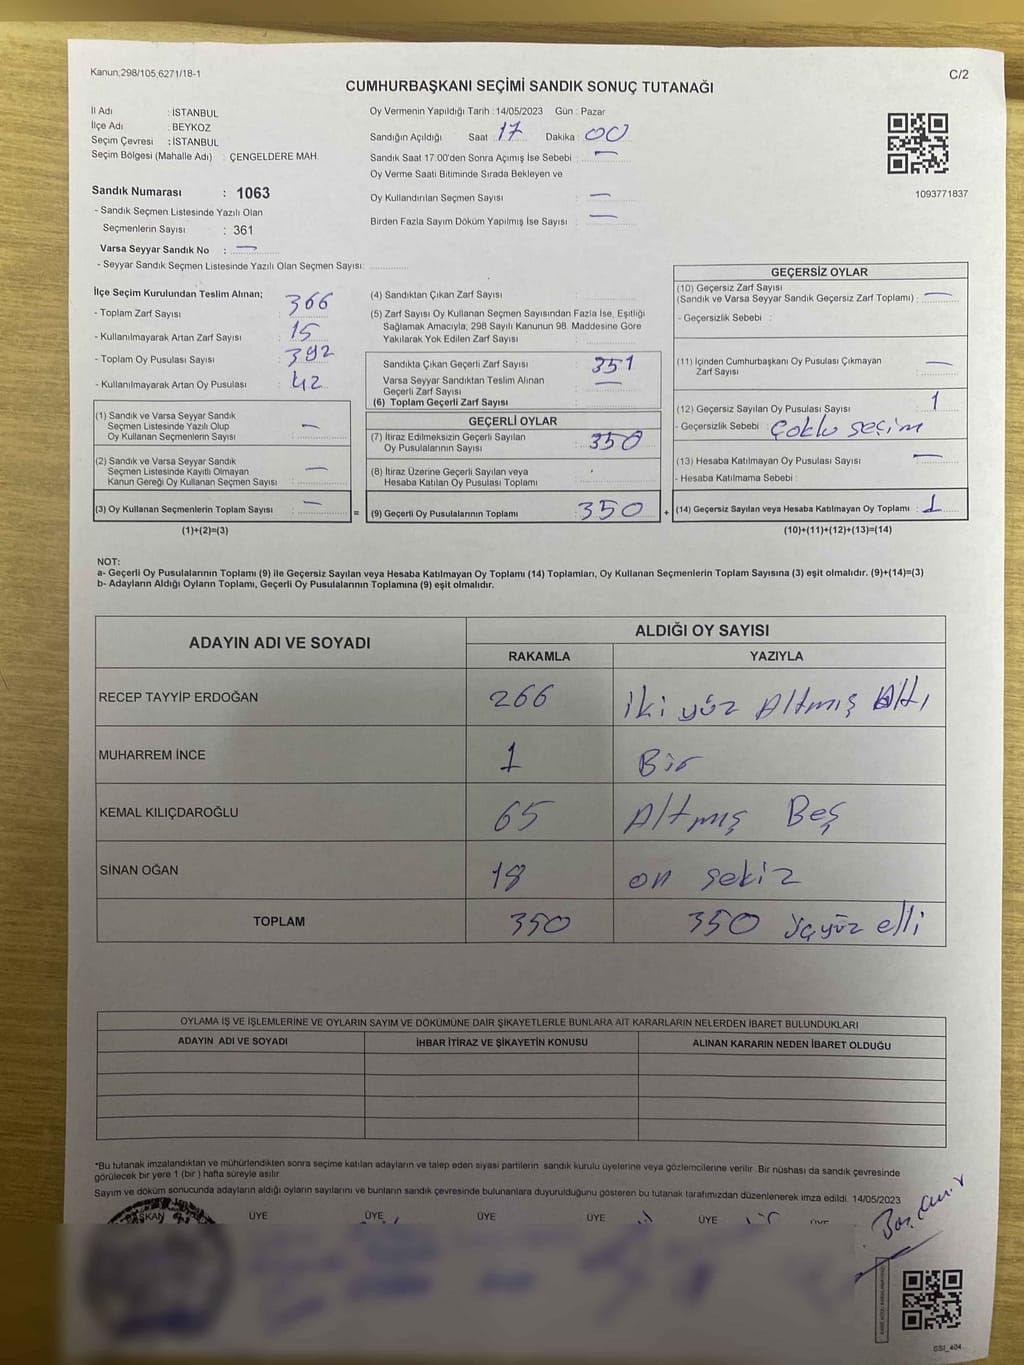 Kanun;298/105,6271/18-1
C/2
CUMHURBAŞKANI SEÇİMİ SANDIK SONUÇ TUTANAĞI
İl Adı : İSTANBUL
İlçe Adı : BEYKOZ
Seçim Çevresi : İSTANBUL
Seçim Bölgesi (Mahalle Adı) : ÇENGELDERE MAH.
Oy Vermenin Yapıldığı Tarih : 14/05/2023 Gün : Pazar
Sandığın Açıldığı Saat 17 Dakika : 00
Sandık Saat 17:00'den Sonra Açımış İse Sebebi : —
Oy Verme Saati Bitiminde Sırada Bekleyen ve
Oy Kullandırılan Seçmen Sayısı : —
Birden Fazla Sayım Döküm Yapılmış İse Sayısı : —
1093771837
Sandık Numarası : 1063
- Sandık Seçmen Listesinde Yazılı Olan
Seçmenlerin Sayısı : 361
Varsa Seyyar Sandık No : —
- Seyyar Sandık Seçmen Listesinde Yazılı Olan Seçmen Sayısı:
İlçe Seçim Kurulundan Teslim Alınan;
- Toplam Zarf Sayısı : 366
- Kullanılmayarak Artan Zarf Sayısı : 15
- Toplam Oy Pusulası Sayısı : 392
- Kullanılmayarak Artan Oy Pusulası : 42
(1) Sandık ve Varsa Seyyar Sandık
Seçmen Listesinde Yazılı Olup
Oy Kullanan Seçmenlerin Sayısı : —
(2) Sandık ve Varsa Seyyar Sandık
Seçmen Listesinde Kayıtlı Olmayan
Kanun Gereği Oy Kullanan Seçmen Sayısı : —
(3) Oy Kullanan Seçmenlerin Toplam Sayısı : —
(1)+(2)=(3)
(4) Sandıktan Çıkan Zarf Sayısı :
(5) Zarf Sayısı Oy Kullanan Seçmen Sayısından Fazla İse, Eşitliği
Sağlamak Amacıyla; 298 Sayılı Kanunun 98. Maddesine Göre
Yakılarak Yok Edilen Zarf Sayısı :
Sandıkta Çıkan Geçerli Zarf Sayısı : 351
Varsa Seyyar Sandıktan Teslim Alınan
Geçerli Zarf Sayısı : —
(6) Toplam Geçerli Zarf Sayısı :
GEÇERLİ OYLAR
(7) İtiraz Edilmeksizin Geçerli Sayılan
Oy Pusulalarının Sayısı : 350
(8) İtiraz Üzerine Geçerli Sayılan veya
Hesaba Katılan Oy Pusulası Toplamı :
= (9) Geçerli Oy Pusulalarının Toplamı : 350 +
GEÇERSİZ OYLAR
(10) Geçersiz Zarf Sayısı
(Sandık ve Varsa Seyyar Sandık Geçersiz Zarf Toplamı) : —
- Geçersizlik Sebebi :
(11) İçinden Cumhurbaşkanı Oy Pusulası Çıkmayan
Zarf Sayısı : —
(12) Geçersiz Sayılan Oy Pusulası Sayısı : 1
- Geçersizlik Sebebi : Çoklu seçim
(13) Hesaba Katılmayan Oy Pusulası Sayısı : —
- Hesaba Katılmama Sebebi :
(14) Geçersiz Sayılan veya Hesaba Katılmayan Oy Toplamı : 1
(10)+(11)+(12)+(13)=(14)
NOT:
a- Geçerli Oy Pusulalarının Toplamı (9) ile Geçersiz Sayılan veya Hesaba Katılmayan Oy Toplamı (14) Toplamları, Oy Kullanan Seçmenlerin Toplam Sayısına (3) eşit olmalıdır. (9)+(14)=(3)
b- Adayların Aldığı Oyların Toplamı, Geçerli Oy Pusulalarının Toplamına (9) eşit olmalıdır.
ADAYIN ADI VE SOYADI
ALDIĞI OY SAYISI
RAKAMLA YAZIYLA
RECEP TAYYİP ERDOĞAN 266 iki yüz Altmış Altı
MUHARREM İNCE 1 Bir
KEMAL KILIÇDAROĞLU 65 Altmış Beş
SİNAN OĞAN 18 on sekiz
TOPLAM 350 350 üçyüz elli
OYLAMA İŞ VE İŞLEMLERİNE VE OYLARIN SAYIM VE DÖKÜMÜNE DAİR ŞİKAYETLERLE BUNLARA AİT KARARLARIN NELERDEN İBARET BULUNDUKLARI
ADAYIN ADI VE SOYADI İHBAR İTİRAZ VE ŞİKAYETİN KONUSU ALINAN KARARIN NEDEN İBARET OLDUĞU
*Bu tutanak imzalandıktan ve mühürlendikten sonra seçime katılan adayların ve talep eden siyasi partilerin sandık kurulu üyelerine veya gözlemcilerine verilir. Bir nüshası da sandık çevresinde
görülecek bir yere 1 (bir ) hafta süreyle asılır.
Sayım ve döküm sonucunda adayların aldığı oyların sayılarını ve bunların sandık çevresinde bulunanlara duyurulduğunu gösteren bu tutanak tarafımızdan düzenlenerek imza edildi. 14/05/2023
ÜYE ÜYE ÜYE ÜYE ÜYE ÜYE